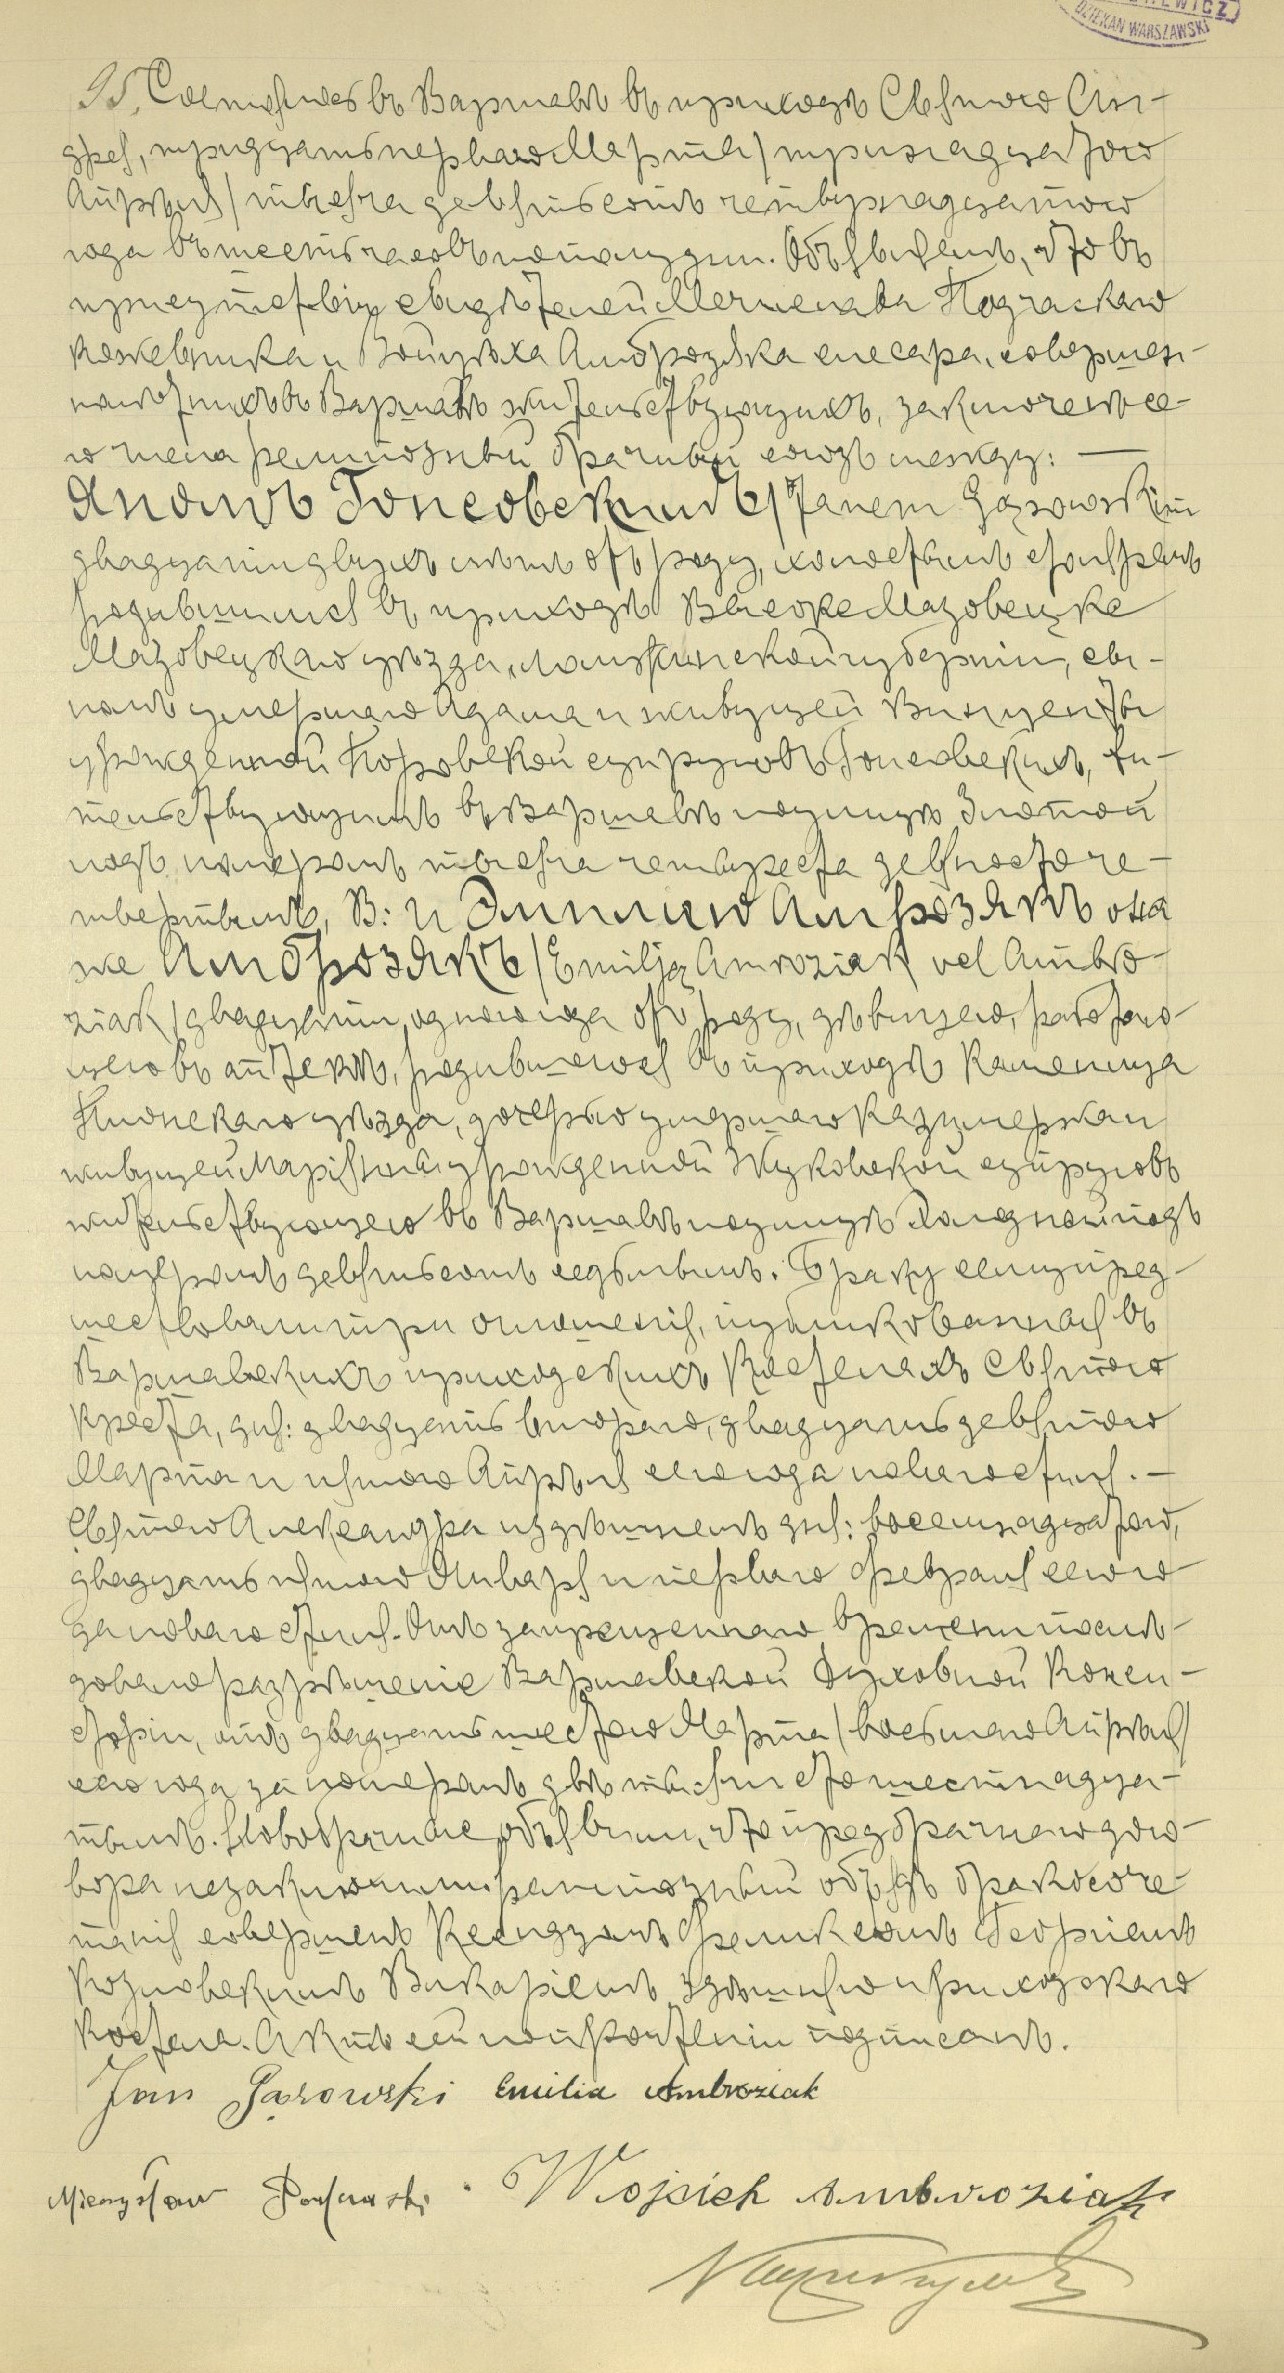 EWICZ
DZIEKAN WARSZAWSKI
95. Состоялось въ Варшавѣ въ приходѣ Святаго Ан-
дрея, тридцать перваго Марта / тринадцатаго
Апрѣля / тысяча девятьсотъ четырнадцатаго
года въ шесть часовъ по полудни. Объявляемъ, что въ
присутствіи свидѣтелей Мечислава Подчаскаго
кожевника и Войцѣха Амброзяка слесаря, совершен-
нолѣтнихъ въ Варшавѣ жительствующихъ, заключенъ се-
го числа религіозный брачный союзъ между: —
Яномъ Гонсовскимъ / Janem Gąsowskim
двадцати двухъ лѣтъ отъ роду, холостымъ столяромъ
родившимся въ приходѣ Высоке Мазовецке
Мазовецкаго уѣзда, Ломжинской губерніи, сы-
номъ умершаго Адама и живущей Винценты
урожденной Коровской супруговъ Гонсовскихъ, жи-
тельствующимъ въ Варшавѣ по улицѣ Злотой
подъ номеромъ тысяча четыреста девяносто че-
твертымъ, В: и Эмилiею Амрозякъ она
же Амброзякъ / Emilją Amroziak vel Ambro-
ziak / двадцати одного года отъ роду, дѣвицею, работаю-
щею въ аптекѣ, родившеюся въ приходѣ Каменица
Плонскаго уѣзда, дочерью умершаго Казимержа и
живущей Маріянны урожденной Жуковской супруговъ
жительствующею въ Варшавѣ по улицѣ Холодной подъ
номеромъ девятьсотъ седьмымъ. Браку сему пред-
шествовали три оглашенія, публикованныя въ
Варшавскихъ приходскихъ костелахъ Святаго
Креста, дня: двадцать втораго, двадцать девятаго
Марта и пятаго Апрѣля сего года новаго стиля. —
Святаго Александра издѣшнемъ дня: восемнадцатаго,
двадцать пятаго Января и перваго Февраля сего го-
да новаго стиля. Отъ запрещеннаго времени послѣ-
довало разрѣшеніе Варшавской Духовной Консис-
торіи, отъ двадцать шестаго Марта / восьмаго Апрѣля /
сего года за номеромъ двѣ тысячи сто шестнадца-
тымъ. Новобрачные объявили, что предбрачнаго дого-
вора не заключили. Религіозный обрядъ бракосоче-
танія совершенъ Ксендзомъ Феликсомъ Георгіемъ
Козловскимъ Викаріемъ здѣшняго приходскаго
костела. Актъ сей по прочтеніи подписанъ.
Jan Gąsowski Emilia Ambroziak
Mieczysław Podczaski. Wojciech Ambroziak